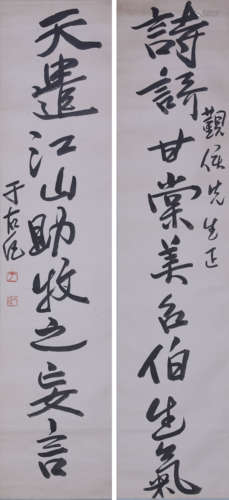 詩 甘棠美召伯生氣
觀侯先生正
天遣江山助牧之妄言
于右任